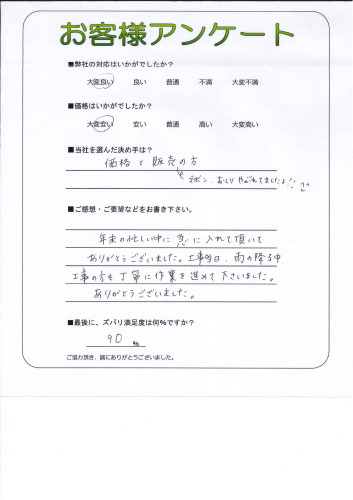 お客様アンケート
■弊社の対応はいかがでしたか？
大変良い 良い 普通 不満 大変不満
■価格はいかがでしたか？
大変安い 安い 普通 高い 大変高い
■当社を選んだ決め手は？
価格と販売の方
ズボン、おしり やぶれてましたよ!!
■ご感想・ご要望などをお書き下さい。
年末の忙しい中に急に入れて頂いて
ありがとうございました。工事当日、雨の降る中
工事の方も丁寧に作業を進めて下さいました。
ありがとうございました。
■最後に、ズバリ満足度は何％ですか？
90 ％
ご協力頂き、誠にありがとうございました。